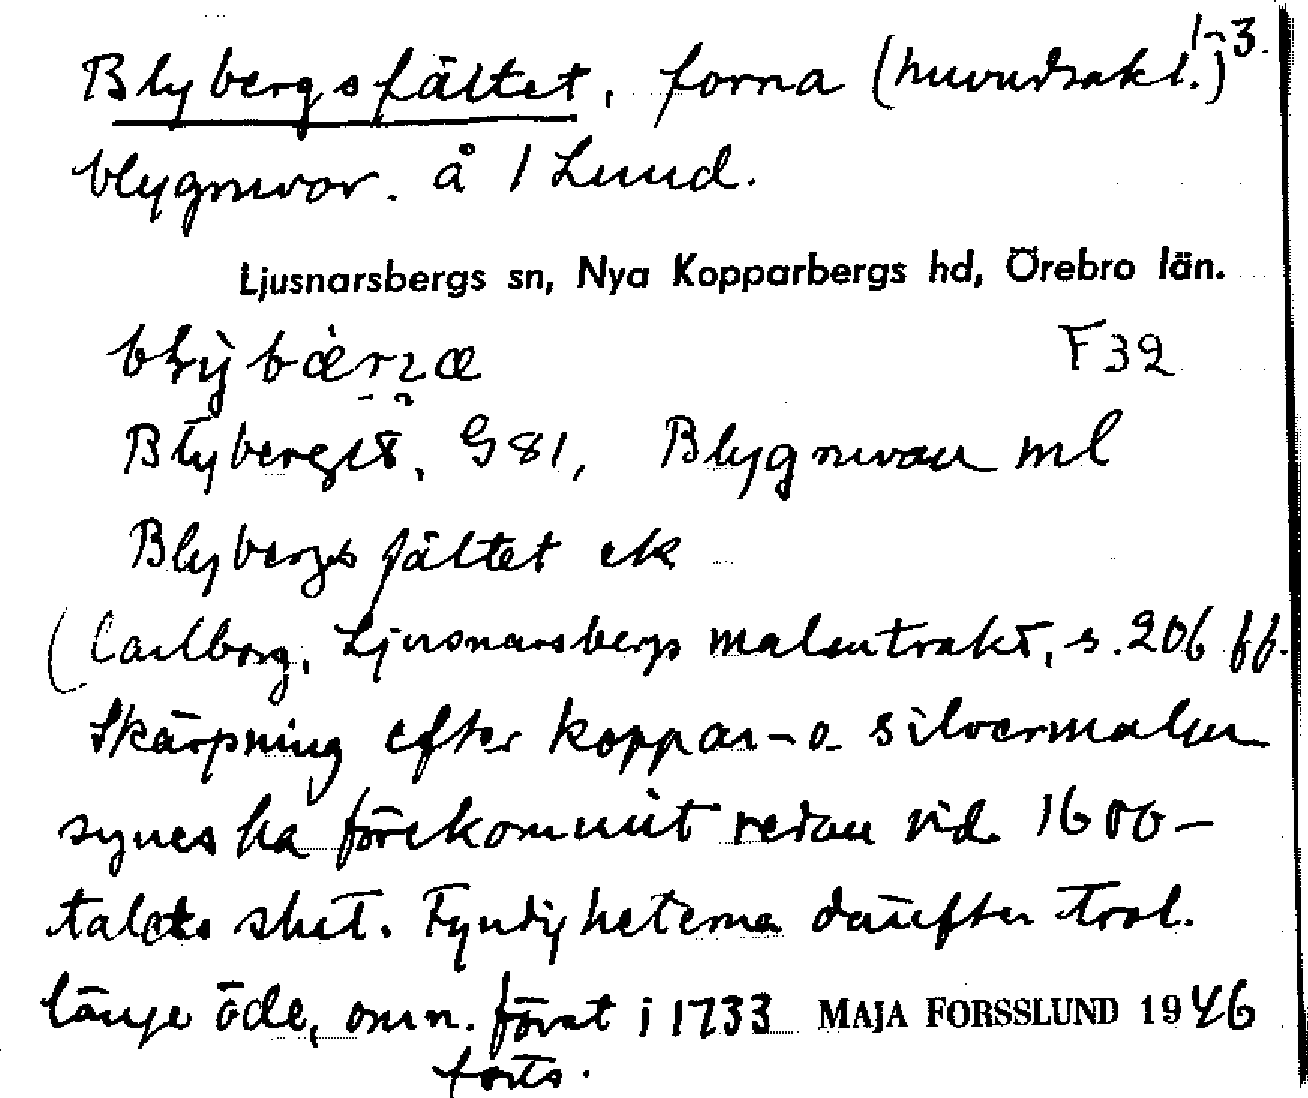 1-3.
Blybergsfältet, forna (huvudsakl.)
blygruvor. å 1 Lund.
Ljusnarsbergs sn, Nya Kopparbergs hd, Örebro län.
F32
Blyberget, G 81, Blygruvan ml
Blybergsfältet ek
(Carlborg, Ljusnarsbergs malmtrakt, s. 206 ff.
Skärpning efter koppar- o. silvermalm
synes ha förekommit redan vid 1600-
talets slut. Fyndigheterna därefter trol.
länge öde, omn. först i 1733 MAJA FORSSLUND 1946
forts.